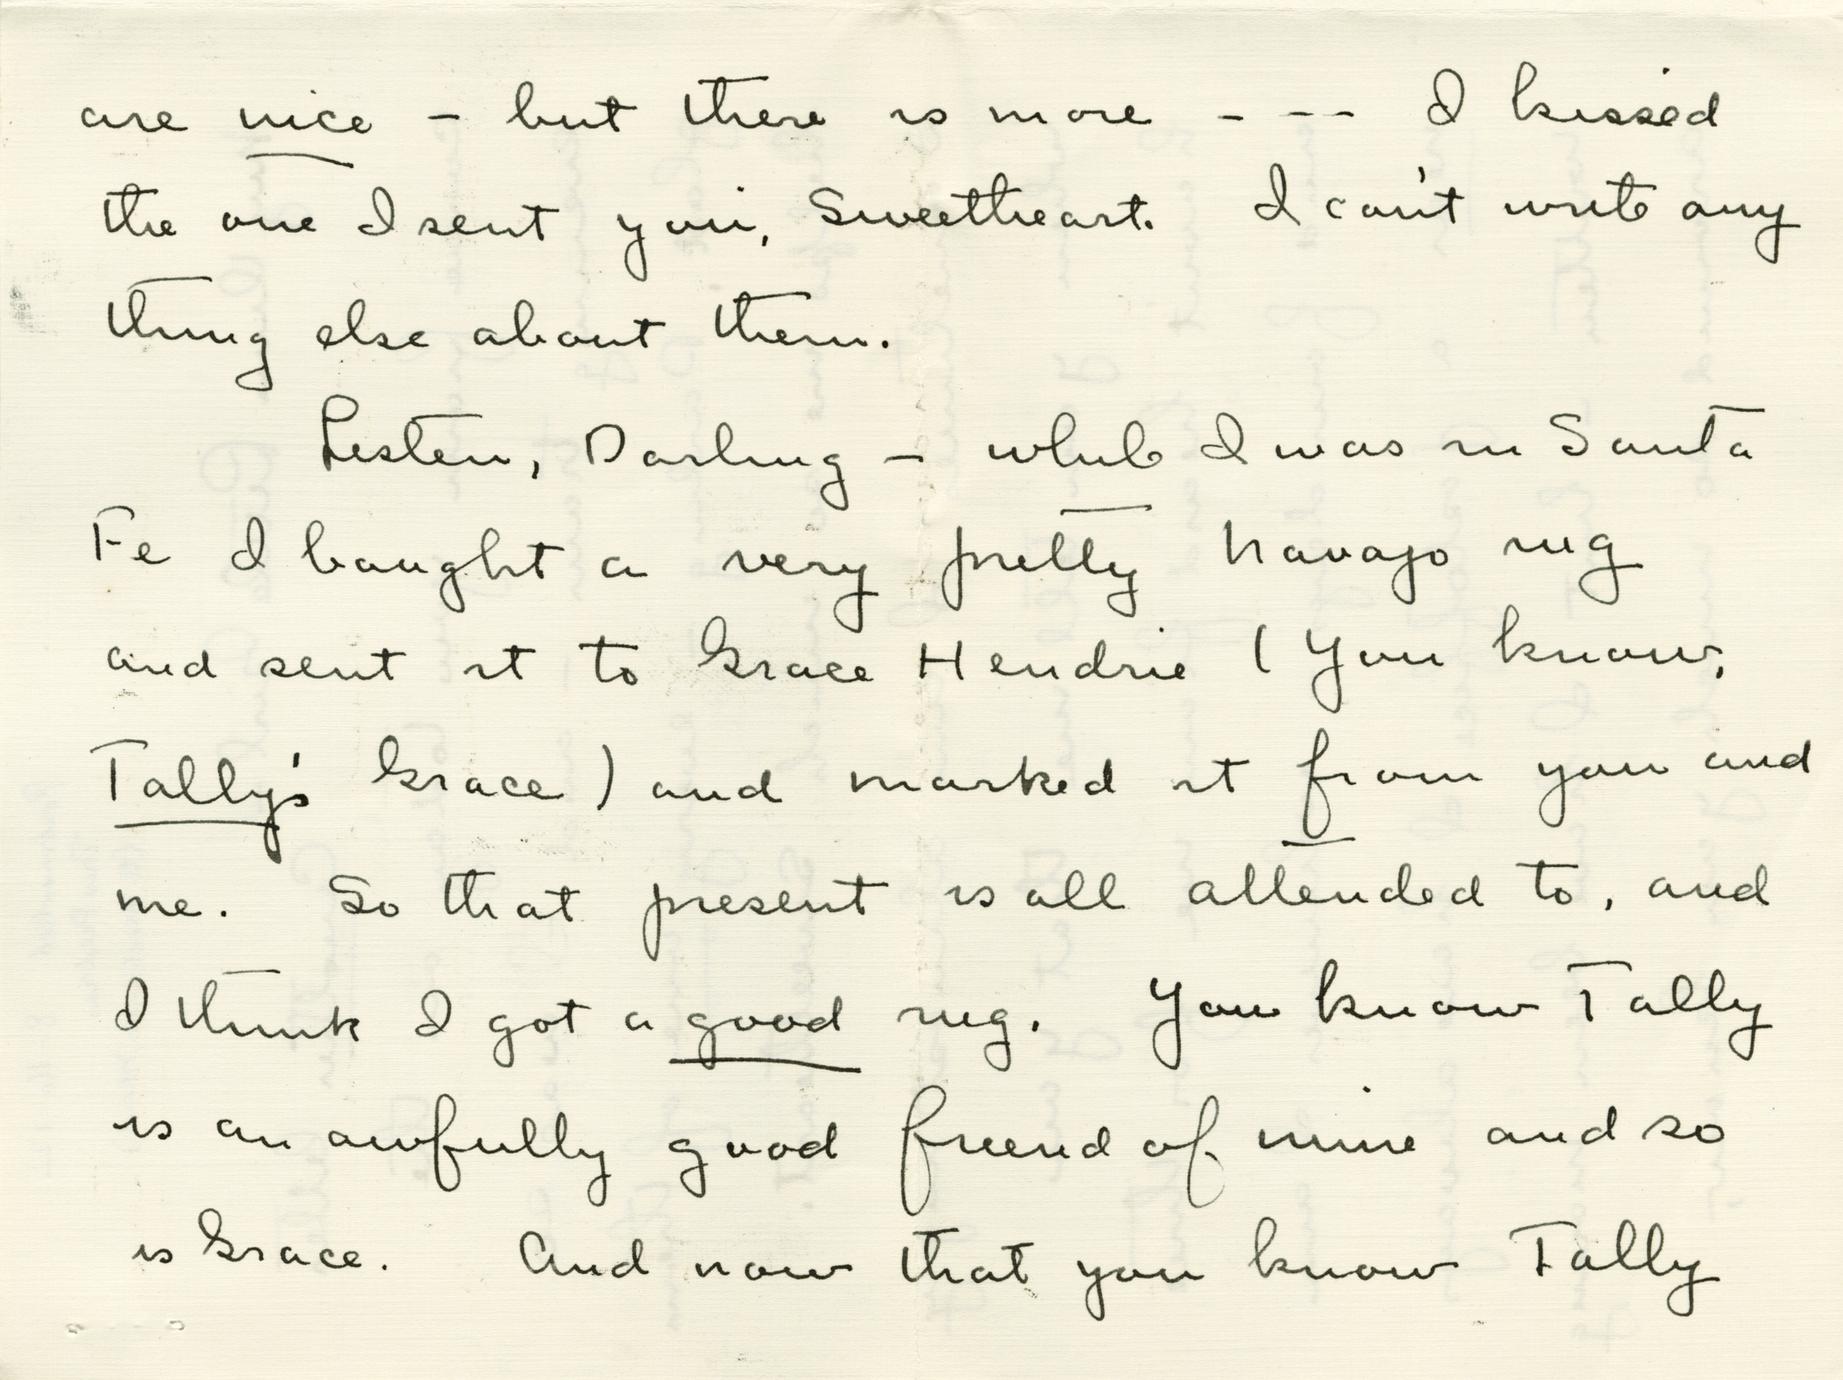 are nice - but there is more - - - I kissed
the one I sent you, Sweetheart. I can't write any
thing else about them.
Listen, Darling - while I was in Santa
Fe I bought a very pretty navajo rug
and sent it to Grace Hendrie (You know,
Tally's Grace) and marked it from you and
me. So that present is all attended to, and
I think I got a good rug. You know Tally
is an awfully good friend of mine and so
is Grace. And now that you know Tally